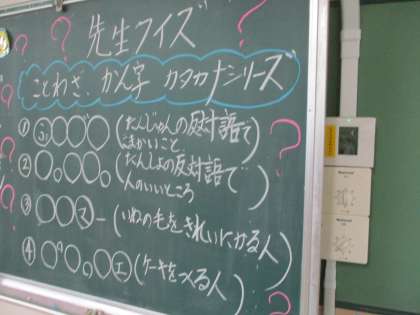 先生クイズ
ことわざ、かん字 カタカナシリーズ
① ふ○○○ (たんじゅんの反対語で
こまかいこと
② ○○○○。 (たんしょの反対語で
人のいいところ)
③ ○○マー (いぬの毛をきれいにかる人)
④ ○○○エ (ケーキをつくる人)